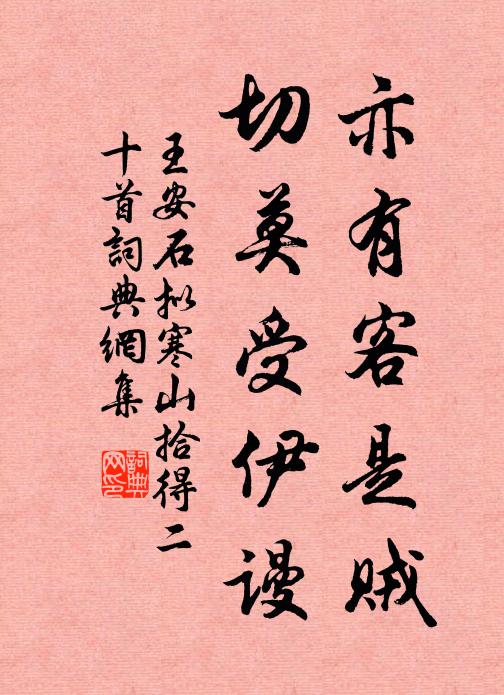 亦有客是贼
切莫受伊谩
王安石拟寒山拾得二
十首詞典網集
詞典
网印